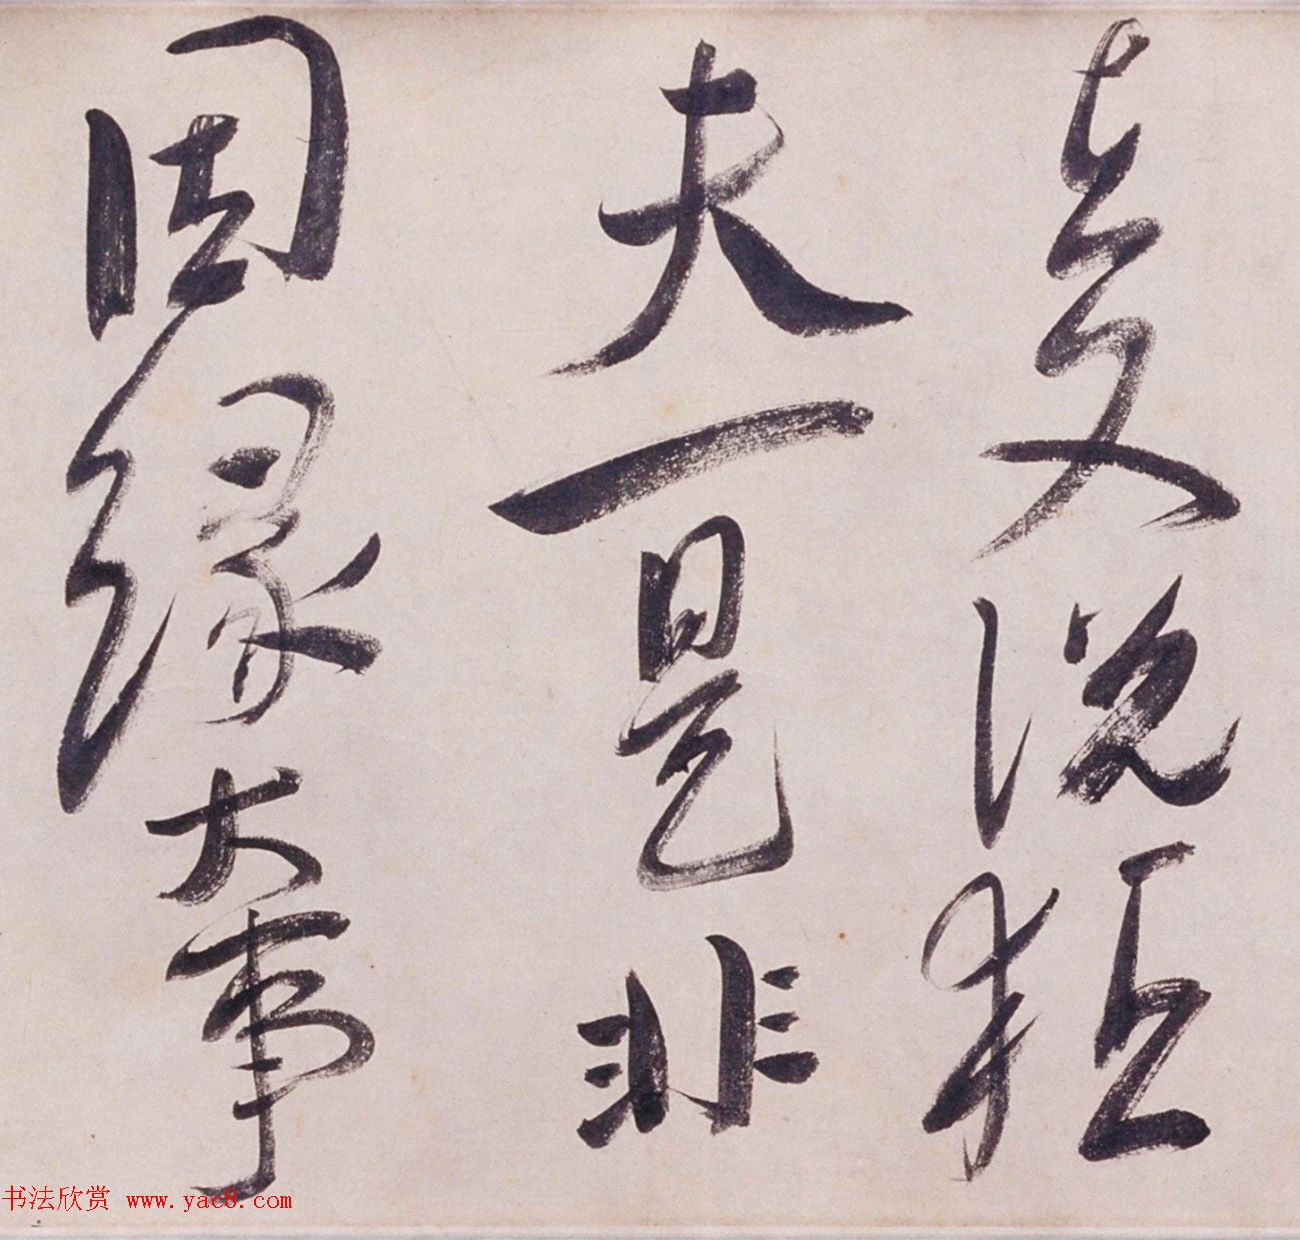 說
夫一是非
因緣大事
书法欣赏 www.yac8.com